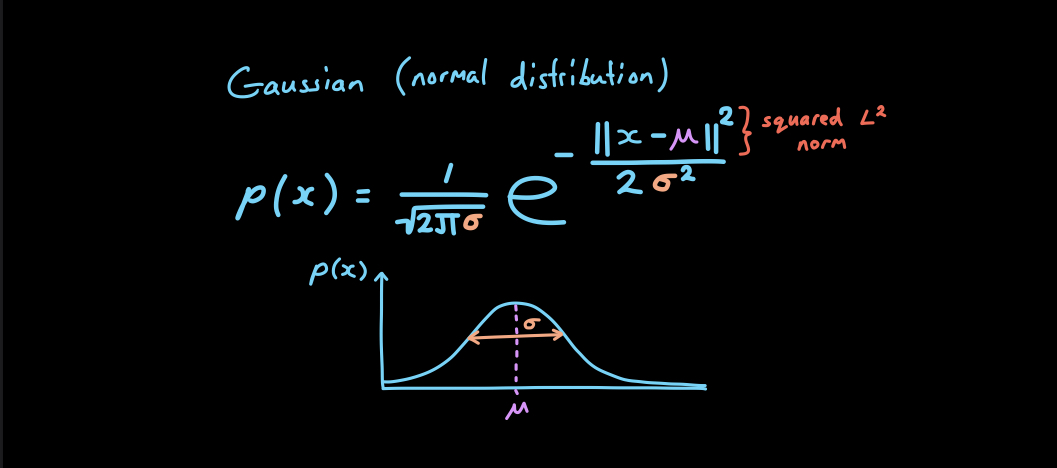 Gaussian (normal distribution)
p(x) = 1/√2πσ e^-||x-μ||²/2σ² } squared L² norm
p(x)
σ
μ